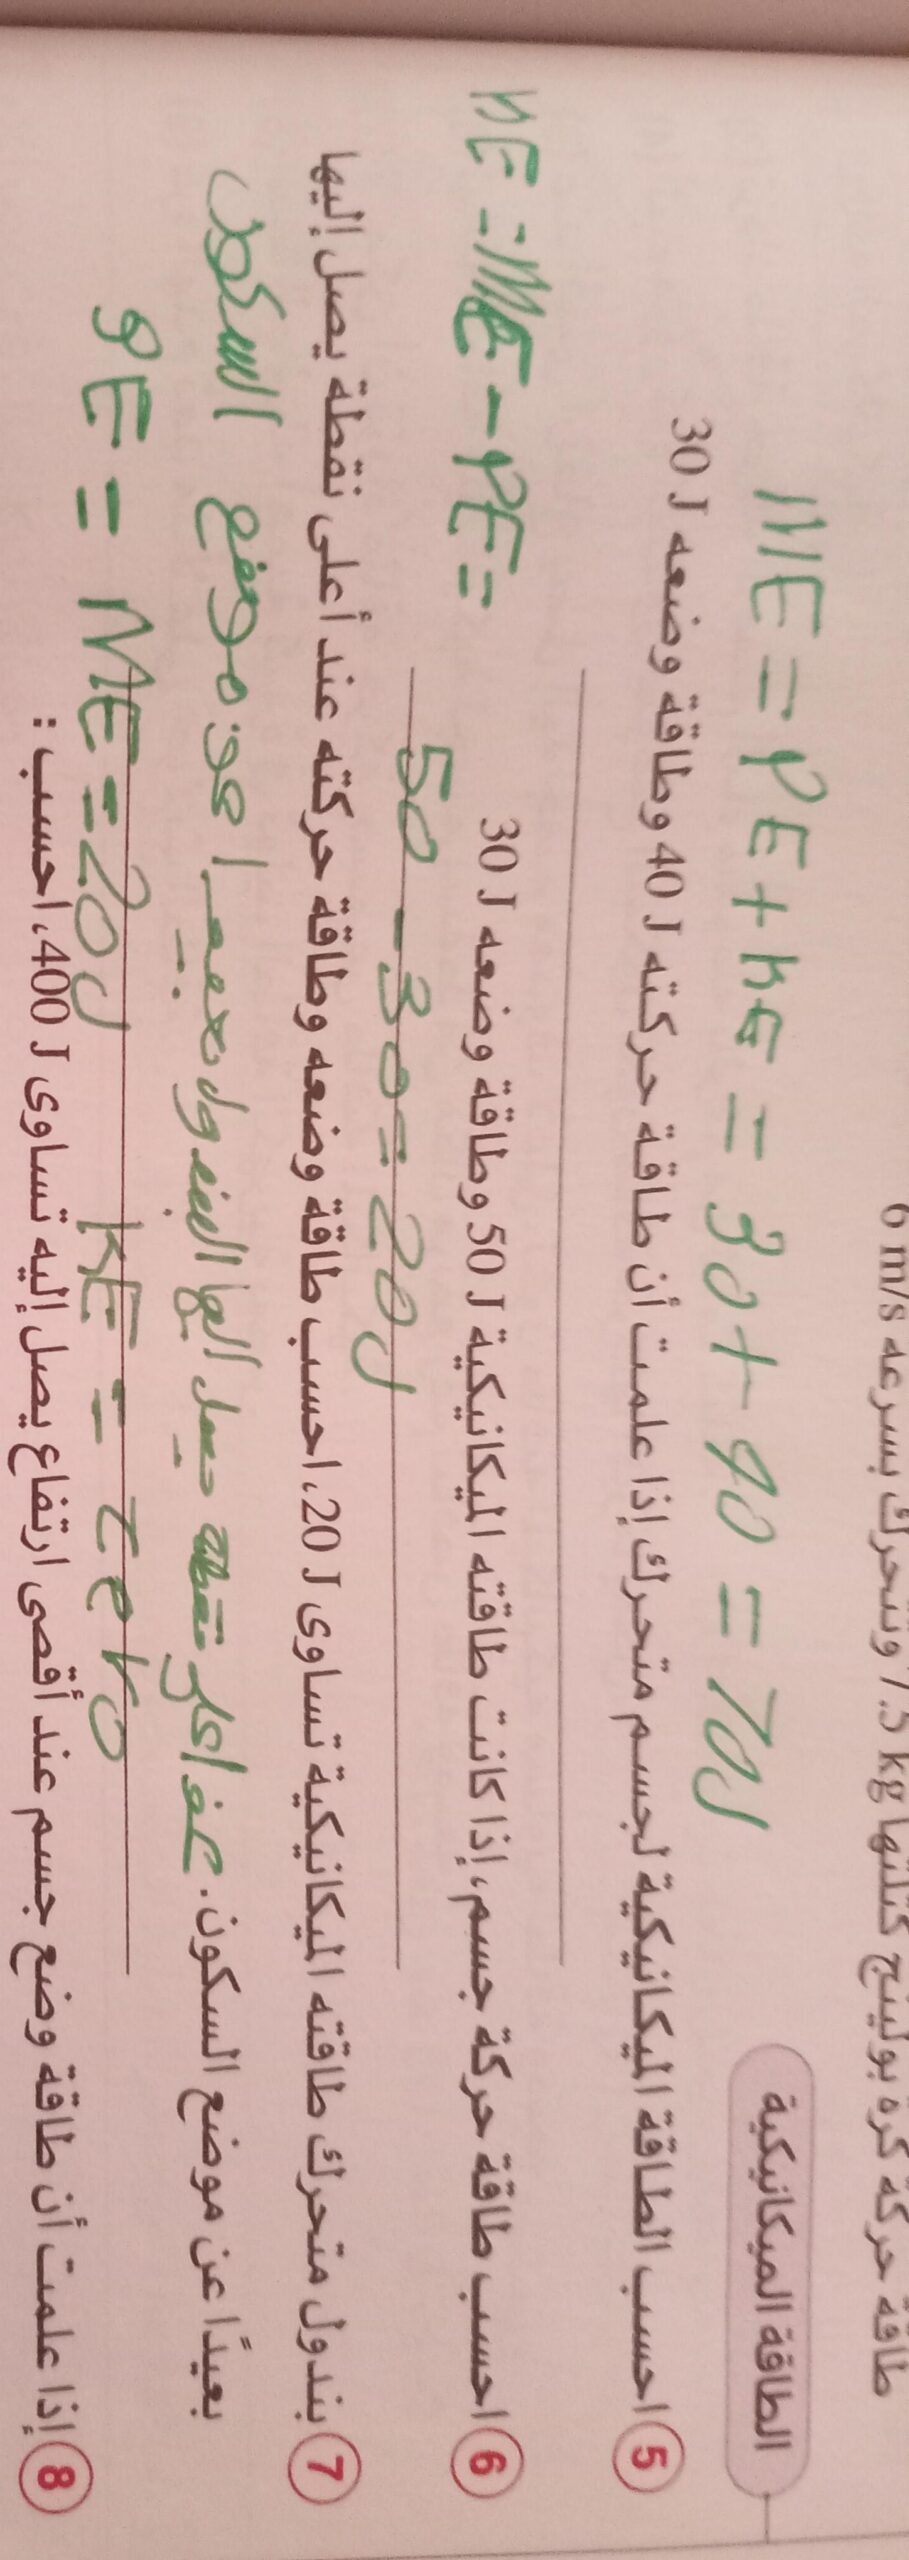 طاقة حركة كرة بولينج كتلتها 7.5 kg وتتحرك بسرعة 6 m/s
الطاقة الميكانيكية
ME = PE + KE = 30 + 40 = 70J
5 احسب الطاقة الميكانيكية لجسم متحرك إذا علمت أن طاقة حركته 40 J وطاقة وضعه 30 J
6 احسب طاقة حركة جسم، إذا كانت طاقته الميكانيكية 50 J وطاقة وضعه 30 J
KE = ME - PE =
50 - 30 = 20J
7 بندول متحرك طاقته الميكانيكية تساوى 20 J، احسب طاقة وضعه وطاقة حركته عند أعلى نقطة يصل إليها
بعيدًا عن موضع السكون. عند اعلى نقطة يصل اليها البندول بعيدا عن موضع السكون
PE = ME = 20J KE = zero
8 إذا علمت أن طاقة وضع جسم عند أقصى ارتفاع يصل إليه تساوى 400 J، احسب :